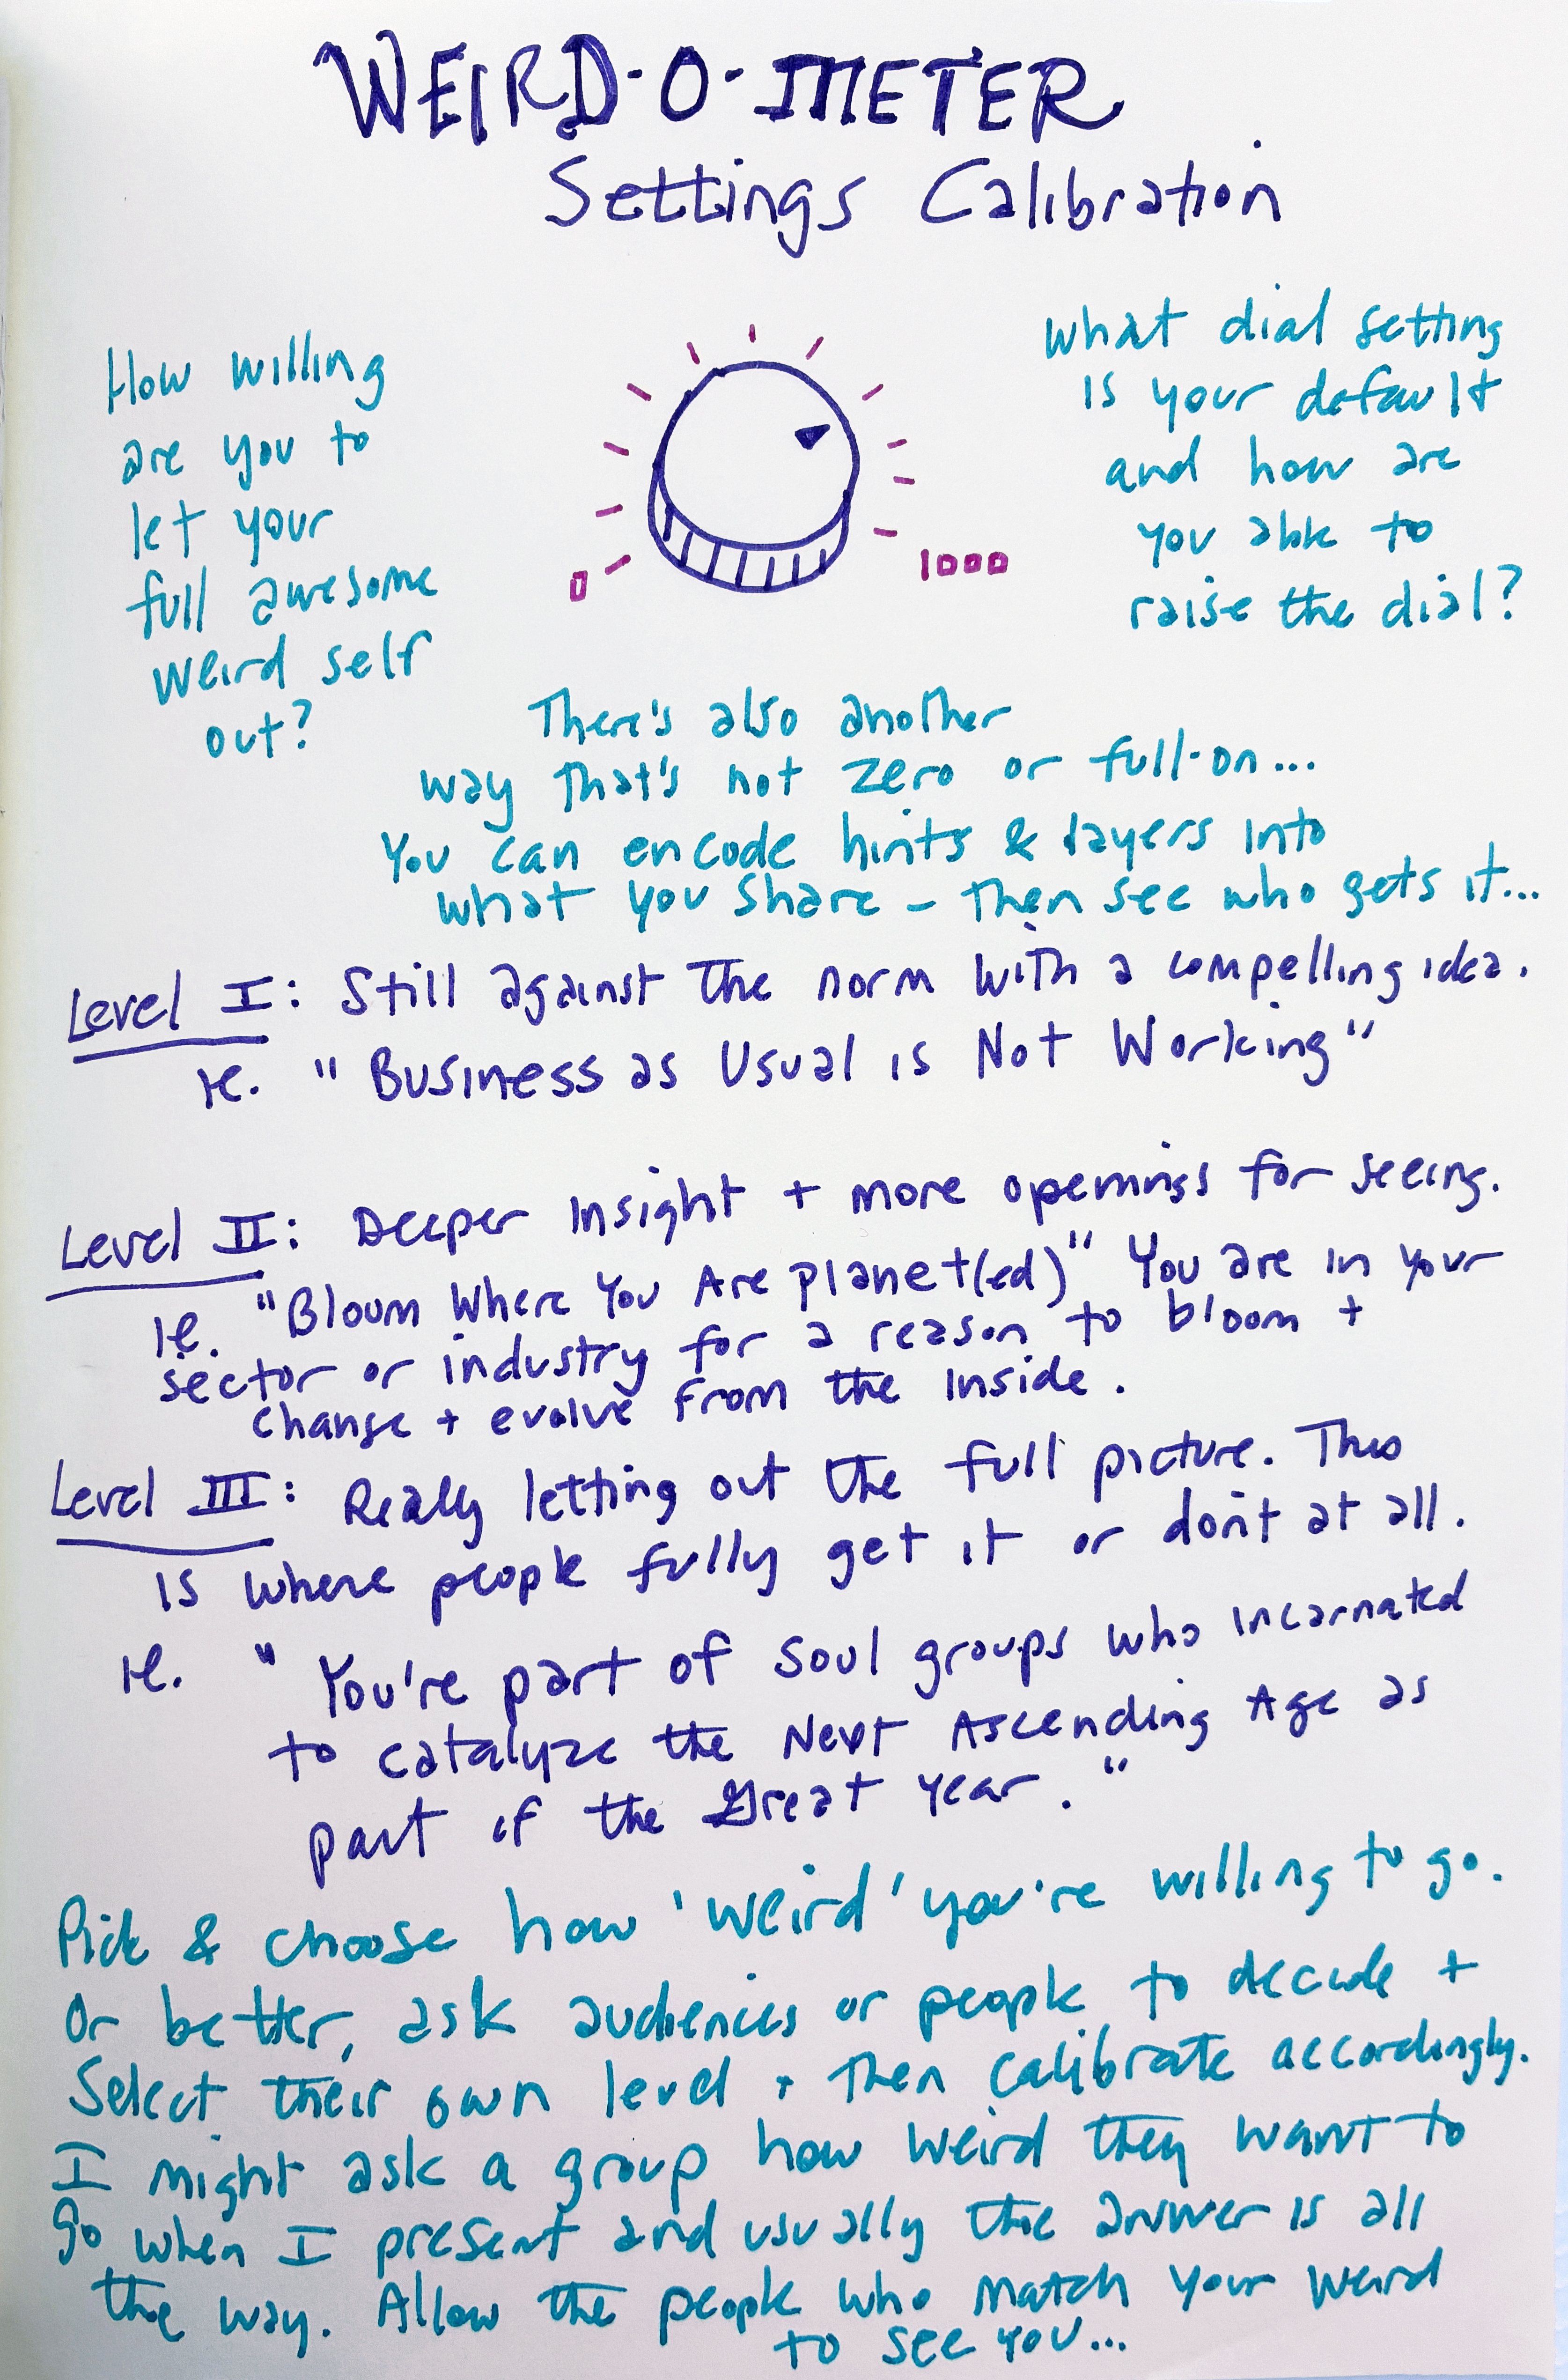 WEIRD-O-METER
Settings Calibration
How willing
are you to
let your
full awesome
weird self
out?
0
1000
What dial setting
is your default
and how are
you able to
raise the dial?
There's also another
way that's not zero or full-on...
You can encode hints & layers into
what you share - then see who gets it...
Level I: Still against the norm with a compelling idea.
ie. "Business as Usual is Not Working"
Level II: Deeper Insight + more openings for seeing.
ie. "Bloom Where You Are planet(ed)" You are in your
sector or industry for a reason to bloom +
change + evolve from the inside.
Level III: Really letting out the full picture. This
is where people fully get it or don't at all.
ie. "You're part of soul groups who incarnated
to catalyze the Next Ascending Age as
part of the Great Year."
Pick & choose how 'weird' you're willing to go.
Or better, ask audiences or people to decide +
Select their own level + then calibrate accordingly.
I might ask a group how weird they want to
go when I present and usually the answer is all
the way. Allow the people who match your weird
to see you...